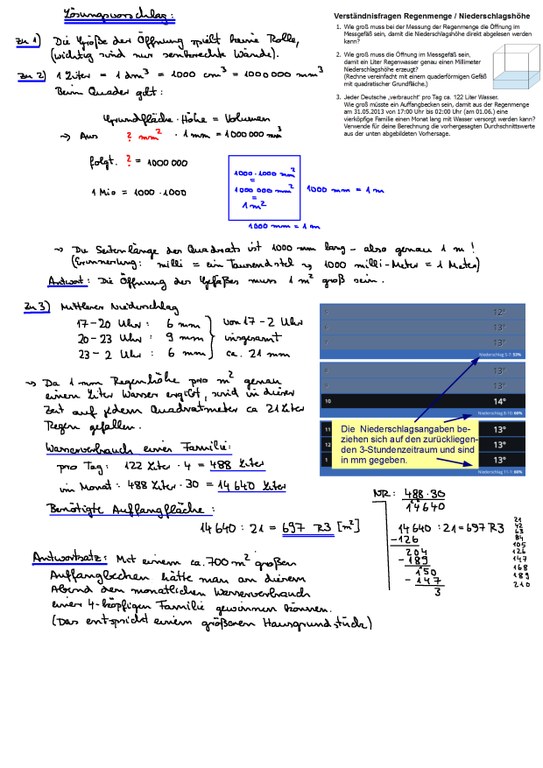 Lösungsvorschlag:
Verständnisfragen Regenmenge / Niederschlagshöhe
1. Wie groß muss bei der Messung der Regenmenge die Öffnung im
Messgefäß sein, damit die Niederschlagshöhe direkt abgelesen werden
kann?
2. Wie groß muss die Öffnung im Messgefäß sein,
damit ein Liter Regenwasser genau einen Millimeter
Niederschlagshöhe erzeugt?
(Rechne vereinfacht mit einem quaderförmigen Gefäß
mit quadratischer Grundfläche.)
3. Jeder Deutsche „verbraucht" pro Tag ca. 122 Liter Wasser.
Wie groß müsste ein Auffangbecken sein, damit aus der Regenmenge
am 31.05.2013 von 17:00 Uhr bis 02:00 Uhr (am 01.06.) eine
vierköpfige Familie einen Monat lang mit Wasser versorgt werden kann?
Verwende für deine Berechnung die vorhergesagten Durchschnittswerte
aus der unten abgebildeten Vorhersage.
Zu 1) Die Größe der Öffnung spielt keine Rolle,
(wichtig sind nur senkrechte Wände).
Zu 2) 1 Liter = 1 dm³ = 1000 cm³ = 1000000 mm³
Beim Quader gilt:
Grundfläche · Höhe = Volumen
→ Aus ? mm² · 1 mm = 1000 000 mm³
folgt. ? = 1000000
1 Mio = 1000 · 1000
1000 · 1000 mm²
=
1000 000 mm²
=
1 m²
1000 mm = 1 m
1000 mm = 1 m
→ Die Seitenlänge des Quadrats ist 1000 mm lang – also genau 1 m!
(Erinnerung: milli = ein Tausendstel → 1000 milli-Meter = 1 Meter)
Antwort: Die Öffnung des Gefäßes muss 1 m² groß sein.
Zu 3) Mittlerer Niederschlag
17-20 Uhr: 6 mm
20-23 Uhr: 9 mm
23-2 Uhr: 6 mm
von 17-2 Uhr
insgesamt
ca. 21 mm
→ Da 1 mm Regenhöhe pro m² genau
einem Liter Wasser ergibt, wird in dieser
Zeit auf jedem Quadratmeter ca 21 Liter
Regen gefallen.
Wasserverbrauch einer Familie:
pro Tag: 122 Liter · 4 = 488 Liter
im Monat: 488 Liter · 30 = 14 640 Liter
Benötigte Auffangfläche:
14 640 : 21 = 697 R3 [m²]
Antwortsatz: Mit einem ca. 700 m² großen
Auffangbecken hätte man an diesem
Abend den monatlichen Wasserverbrauch
einer 4-köpfigen Familie gewinnen können.
(Das entspricht einem größeren Hausgrundstück)
12°
13°
13°
13°
13°
10 14°
11 13°
12 13°
1 13°
Die Niederschlagsangaben be-
ziehen sich auf den zurückliegen-
den 3-Stundenzeitraum und sind
in mm gegeben.
NR: 488·30
14640
14640 : 21 = 697 R3
-126
204
-189
150
-147
3
21
42
63
84
105
126
147
168
189
210